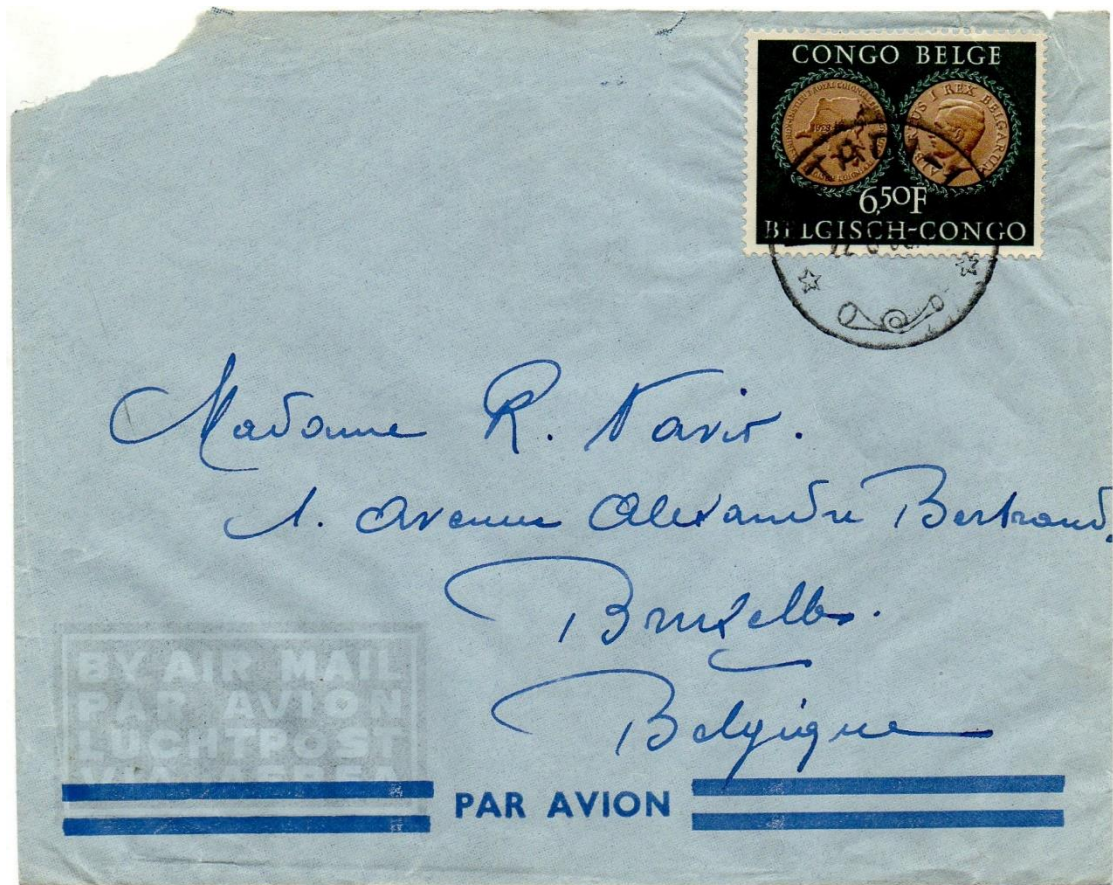 CONGO BELGE
1928
ALBERTUS I REX BELGARUM
6,50F
BELGISCH-CONGO
Madame R.
1. Avenue Alexandre Bertrand.
Bruxelles.
Belgique
BY AIR MAIL
PAR AVION
LUCHTPOST
VIA AEREA
PAR AVION